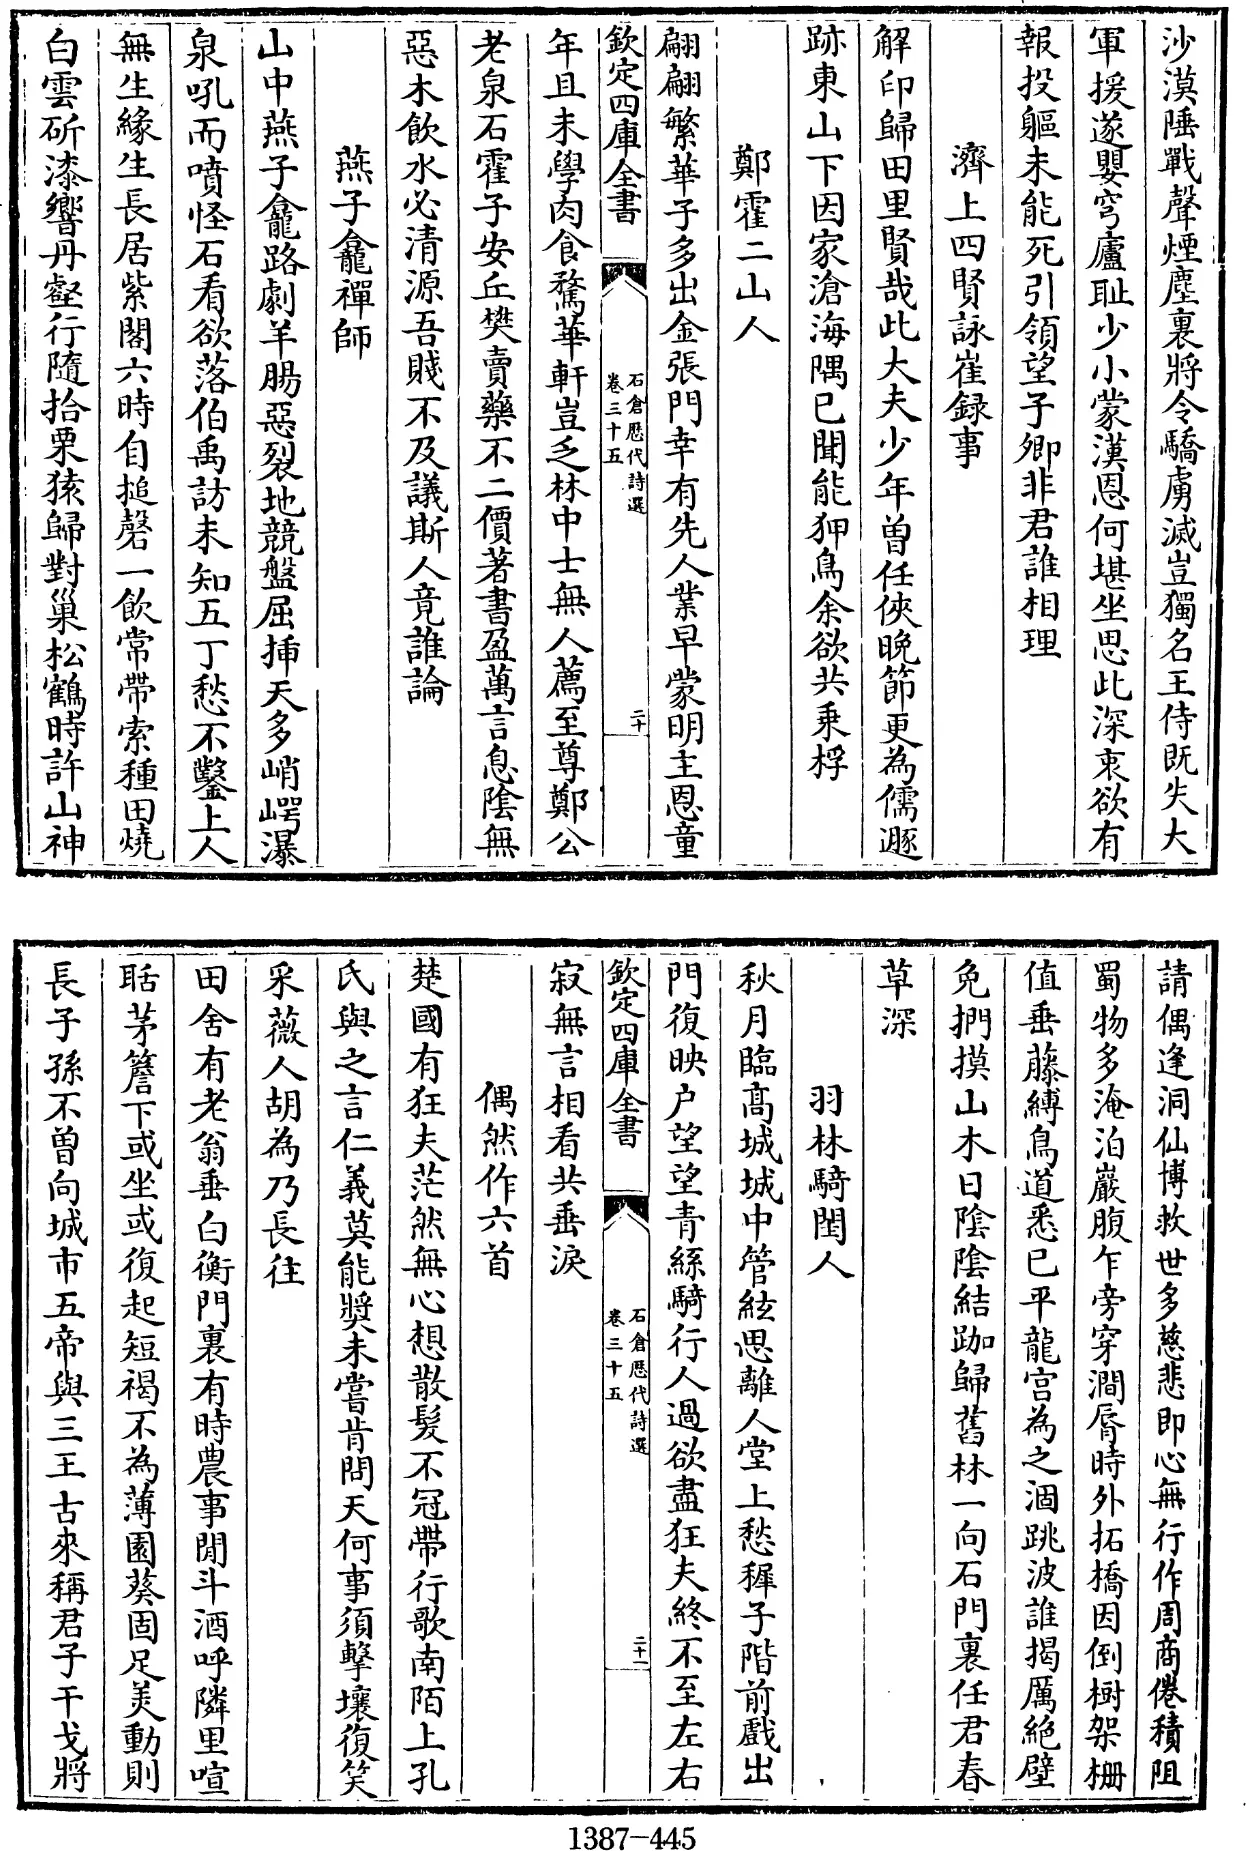 沙漠陲戰聲煙塵裏將令驕虜滅豈獨名王侍既失大
軍援遂嬰穹廬耻少小蒙漢恩何堪坐思此深衷欲有
報投軀未能死引領望子卿非君誰相理
濟上四賢詠崔録事
解印歸田里賢哉此大夫少年曽任俠晚節更為儒遯
跡東山下因家滄海隅已聞能狎鳥余欲共乗桴
鄭霍二山人
翩翩繁華子多出金張門幸有先人業早蒙明主恩童
欽定四庫全書
石倉歷代詩選
卷三十五
二十
年且未學肉食騖華軒豈乏林中士無人薦至尊鄭公
老泉石霍子安丘樊賣藥不二價著書盈萬言息陰無
惡木飲水必清源吾賤不及議斯人竟誰論
燕子龕禪師
山中燕子龕路劇羊腸惡裂地競盤屈挿天多峭崿瀑
泉吼而噴怪石看欲落伯禹訪未知五丁愁不鑿上人
無生緣生長居紫閣六時自搥磬一飲常帶索種田燒
白雲斫漆響丹壑行隨拾栗猿歸對巢松鶴時許山神
請偶逢洞仙博救世多慈悲即心無行作周商倦積阻
蜀物多淹泊巖腹乍旁穿澗脣時外拓橋因倒樹架柵
值垂藤縛鳥道悉已平龍宫為之涸跳波誰揭厲絶壁
免捫摸山木日陰陰結跏歸舊林一向石門裏任君春
草深
羽林騎閨人
秋月臨髙城城中管絃思離人堂上愁穉子階前戲出
門復映户望望青絲騎行人過欲盡狂夫終不至左右
欽定四庫全書
石倉歷代詩選
卷三十五
二十一
寂無言相看共垂淚
偶然作六首
楚國有狂夫茫然無心想散髮不冠帶行歌南陌上孔
氏與之言仁義莫能奬未嘗肯問天何事須擊壤復笑
采薇人胡為乃長往
田舍有老翁垂白衡門裏有時農事閒斗酒呼隣里喧
聒茅簷下或坐或復起短褐不為薄園葵固足美動則
長子孫不曽向城市五帝與三王古來稱君子干戈將
1387-445